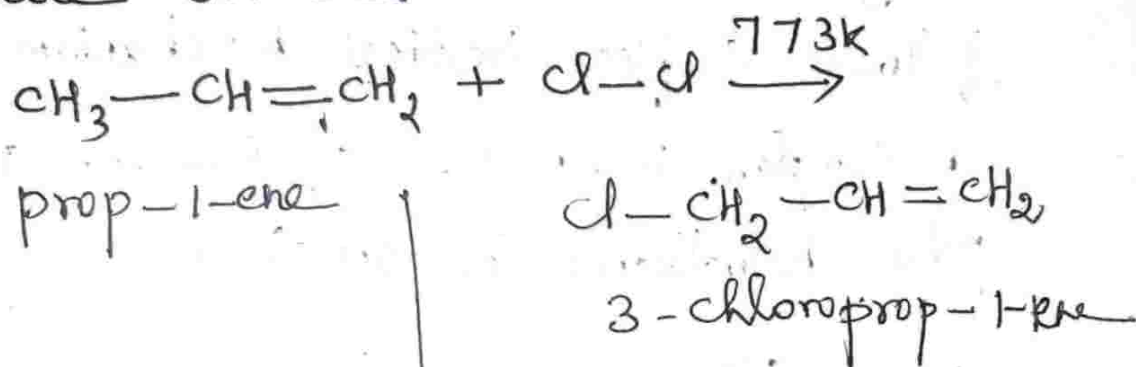 773K
CH₃—CH=CH₂ + Cl—Cl ⟶
prop-1-ene
Cl—CH₂—CH=CH₂
3-chloroprop-1-ene